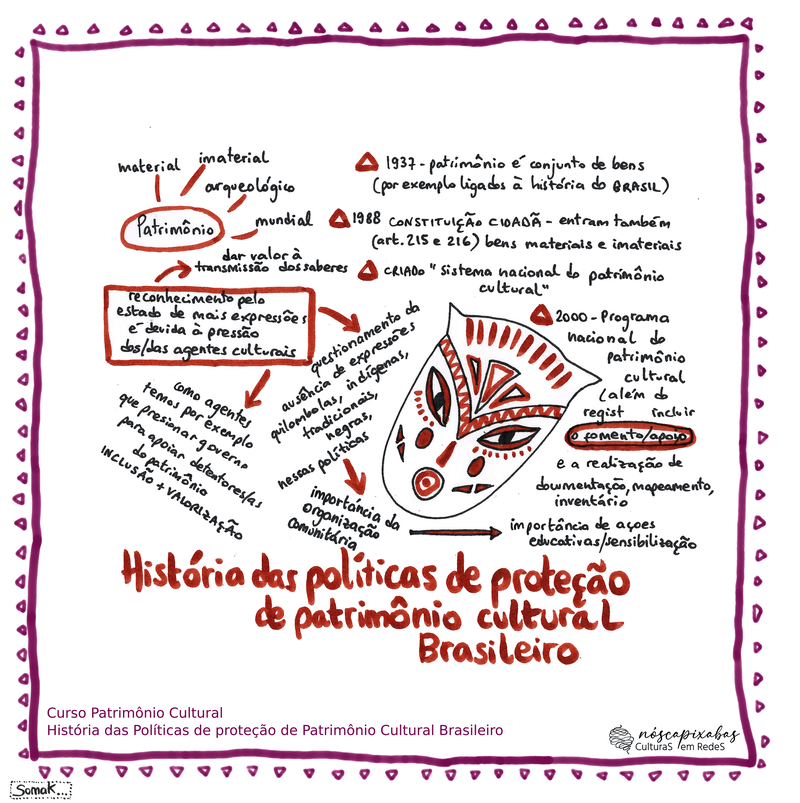 material
imaterial
arqueológico
mundial
Patrimônio
dar valor à
transmissão dos saberes
reconhecimento pelo
estado de mais expressões
é devida à pressão
dos/das agentes culturais
como agentes
temos por exemplo
que presionar governo
para apoiar detentores/as
do patrimônio
INCLUSÃO + VALORIZAÇÃO
questionamento da
ausência de expressões
qilombolas, indígenas,
tradicionais,
negras,
nessas políticas
importância da
organização
comunitária
importância de açoes
educativas/sensibilização
1937 - patrimônio é conjunto de bens
(por exemplo ligados à história do BRASIL)
1988 CONSTITUIÇÃO CIDADÃ - entram também
(art. 215 e 216) bens materiais e imateriais
CRIADO "sistema nacional do patrimônio
cultural"
2000 - Programa
nacional do
patrimônio
cultural
(além do
regist incluir
o fomento/apoio
e a realização de
doumentação, mapeamento,
inventário
História das políticas de proteção
de patrimônio cultural
Brasileiro
Curso Patrimônio Cultural
História das Políticas de proteção de Patrimônio Cultural Brasileiro
nóscapixabas
CulturaS em RedeS
SomaK...